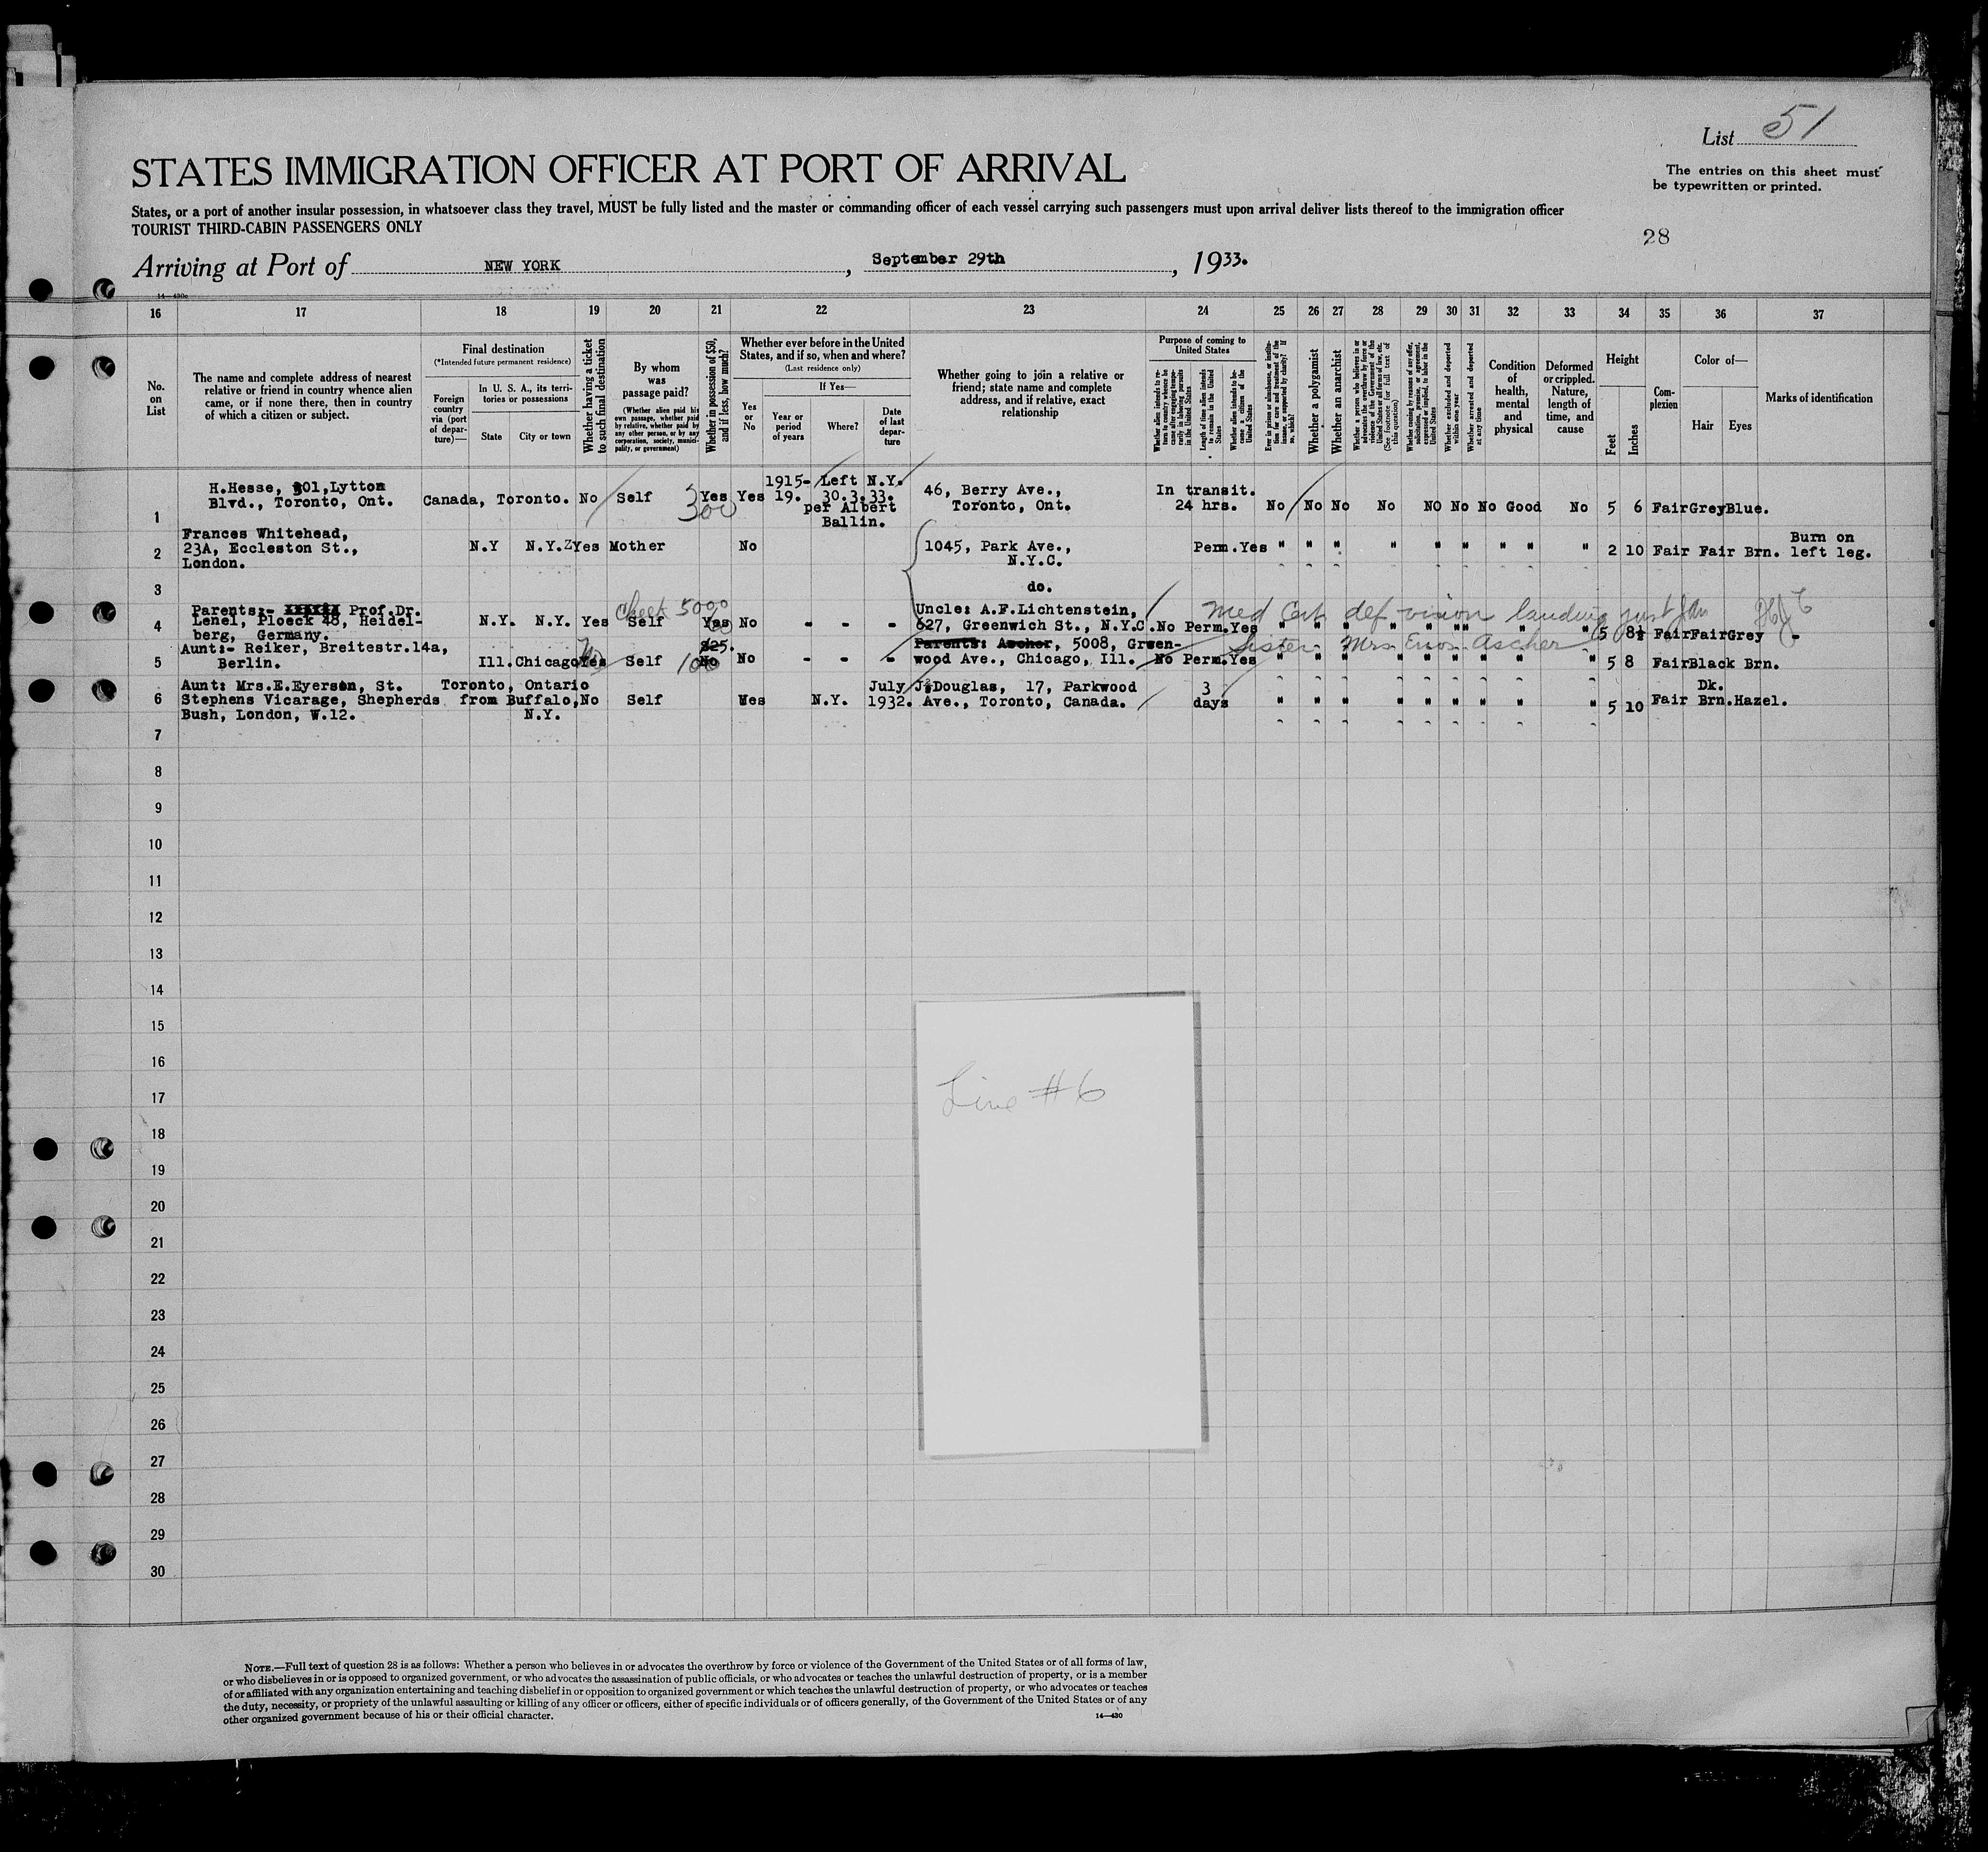 List 51
STATES IMMIGRATION OFFICER AT PORT OF ARRIVAL
The entries on this sheet must be typewritten or printed.
States, or a port of another insular possession, in whatsoever class they travel, MUST be fully listed and the master or commanding officer of each vessel carrying such passengers must upon arrival deliver lists thereof to the immigration officer
TOURIST THIRD-CABIN PASSENGERS ONLY
28
Arriving at Port of NEW YORK, September 29th, 1933.
14—430c
16 17 18 19 20 21 22 23 24 25 26 27 28 29 30 31 32 33 34 35 36 37
No. on List
The name and complete address of nearest relative or friend in country whence alien came, or if none there, then in country of which a citizen or subject.
Final destination
(*Intended future permanent residence)
Foreign country via (port of departure)—
In U. S. A., its territories or possessions
State
City or town
Whether having a ticket to such final destination
By whom was passage paid?
(Whether alien paid his own passage, whether paid by relative, whether paid by any other person, or by any corporation, society, municipality, or government)
Whether in possession of $50, and if less, how much?
Whether ever before in the United States, and if so, when and where?
(Last residence only)
Yes or No
If Yes—
Year or period of years
Where?
Date of last departure
Whether going to join a relative or friend; state name and complete address, and if relative, exact relationship
Purpose of coming to United States
Length of time alien intends to remain in the United States
Whether alien intends to become a citizen of the United States
Whether a polygamist
Whether an anarchist
Whether excluded and deported within one year
Whether arrested and deported at any time
Condition of health, mental and physical
Deformed or crippled. Nature, length of time, and cause
Height
Feet
Inches
Complexion
Color of—
Hair
Eyes
Marks of identification
1 H.Hesse, 301,Lytton Blvd., Toronto, Ont. Canada, Toronto. No Self 300 Yes Yes 1915-19. Left N.Y. 30.3.33. per Albert Ballin. 46, Berry Ave., Toronto, Ont. In transit. 24 hrs. No No No No NO No No Good No 5 6 Fair Grey Blue.
2 Frances Whitehead, 23A, Eccleston St., London. N.Y N.Y. Yes Mother No 1045, Park Ave., N.Y.C. Perm. Yes " " " " " " " " " 2 10 Fair Fair Brn. Burn on left leg.
3 do.
4 Parents:- Prof.Dr. Lenel, Ploeck 48, Heidelberg, Germany. N.Y. N.Y. Yes Check 5000 Self Yes No - - - Uncle: A.F.Lichtenstein, 627, Greenwich St., N.Y.C. No Perm. Yes Med Cert def vision landing " " " " " " " " " 5 8½ Fair Fair Grey -
5 Aunt:- Reiker, Breitestr.14a, Berlin. Ill. Chicago Yes No Self 100 $25. No No - - - Parents: Ascher, 5008, Greenwood Ave., Chicago, Ill. No Perm. Yes Sister Mrs. Ascher " " " " " " " " " 5 8 Fair Black Brn.
6 Aunt: Mrs.E.Eyerson, St. Stephens Vicarage, Shepherds Bush, London, W.12. Toronto, Ontario from Buffalo, N.Y. No Self Yes N.Y. July 1932. J.Douglas, 17, Parkwood Ave., Toronto, Canada. 3 days " " " " " " " " " 5 10 Fair Dk. Brn. Hazel.
7
8
9
10
11
12
13
14
15
16
17
18
19
20
21
22
23
24
25
26
27
28
29
30
Line #6
NOTE.—Full text of question 28 is as follows: Whether a person who believes in or advocates the overthrow by force or violence of the Government of the United States or of all forms of law,
or who disbelieves in or is opposed to organized government, or who advocates the assassination of public officials, or who advocates or teaches the unlawful destruction of property, or is a member
of or affiliated with any organization entertaining and teaching disbelief in or opposition to organized government or which teaches the unlawful destruction of property, or who advocates or teaches
the duty, necessity, or propriety of the unlawful assaulting or killing of any officer or officers, either of specific individuals or of officers generally, of the Government of the United States or of any
other organized government because of his or their official character.
14—430